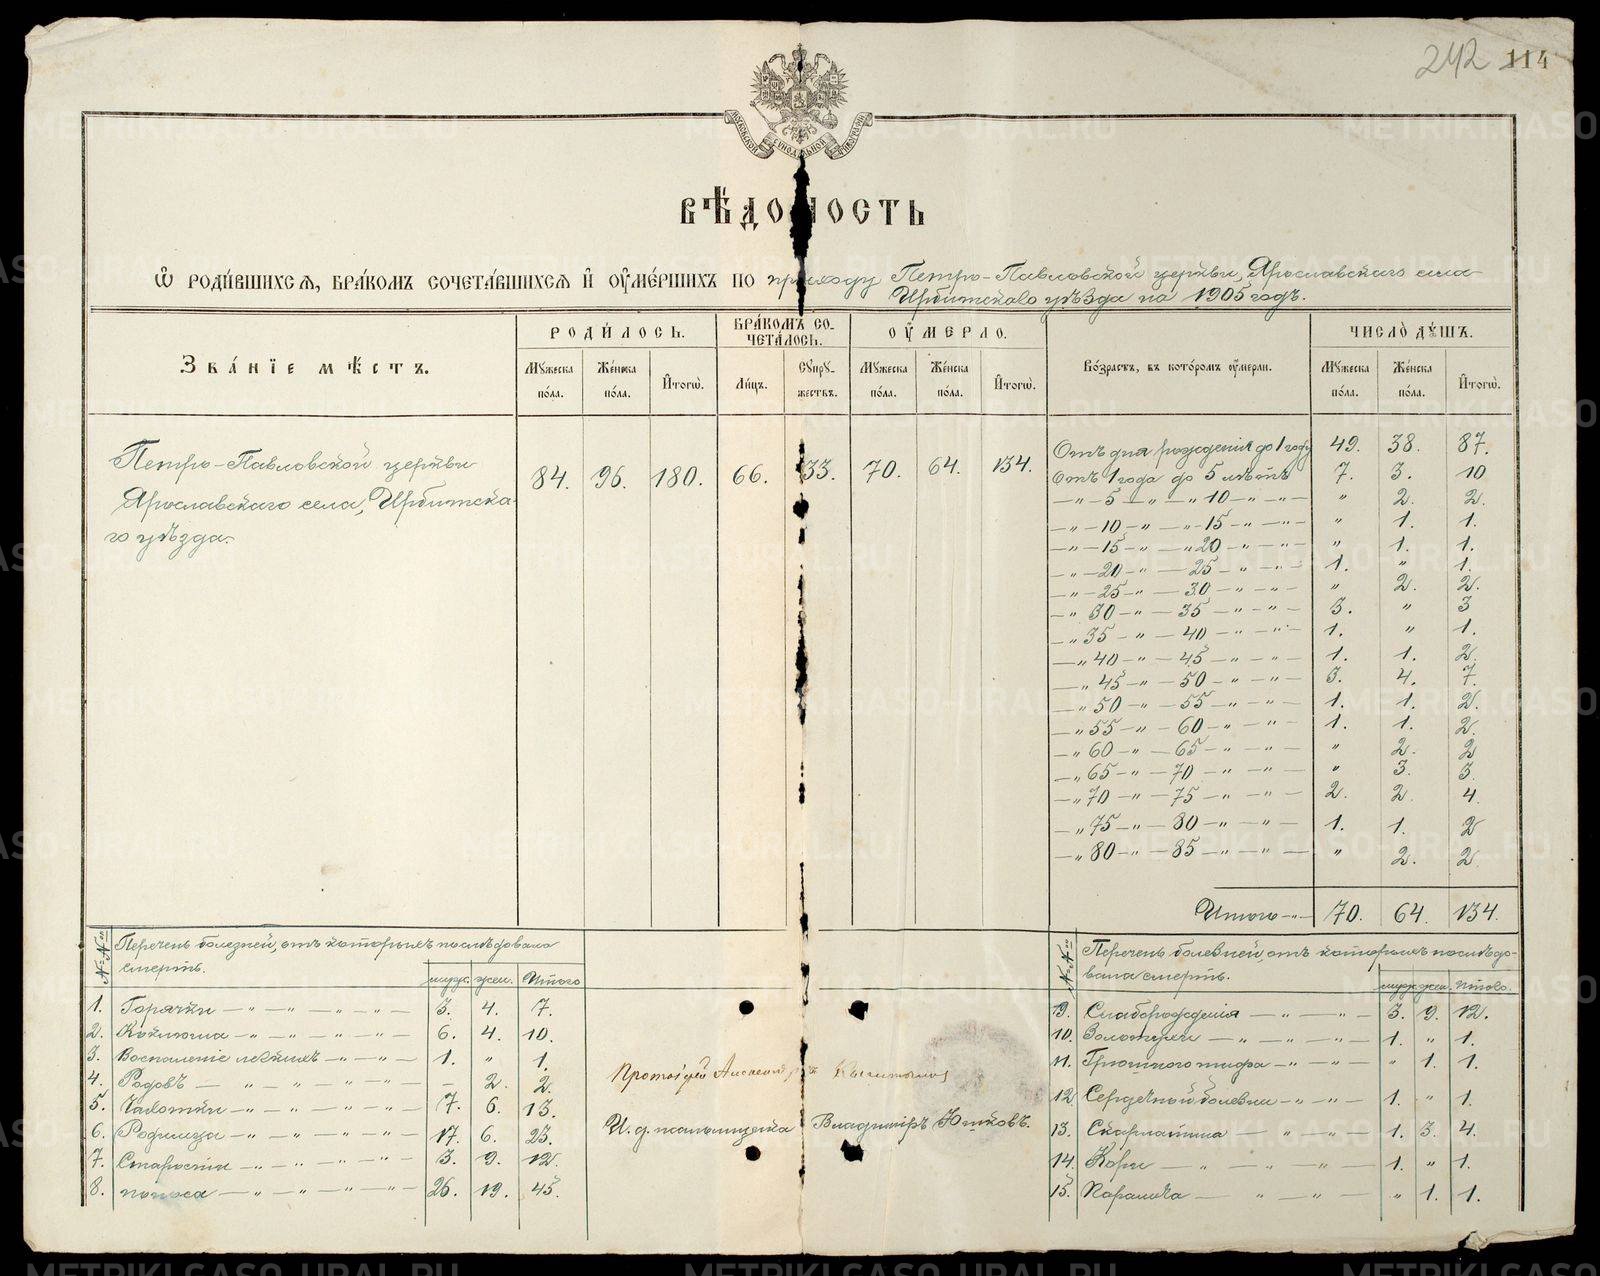 242 114
МОСКОВСКОЙ СѴНОДАЛЬНОЙ ТИПОГРАФІИ
ВѢДОМОСТЬ
Ѡ РОДИ́ВШИХСѦ, БРА́КОМЪ СОЧЕТА́ВШИХСѦ И҆ ОУ҆МЕ́РШИХЪ ПО приходу Петро-Павловской церкви, Ярославскаго села
Ирбитскаго уѣзда на 1905 годъ.
ЗВА́НІЕ МѢ́СТЪ. РОДИ́ЛОСЬ. БРА́КОМЪ СО-ЧЕТА́ЛОСЬ. ОУ҆́МЕРЛО. Во́зрастъ, въ кото́ромъ оу҆́мерли. ЧИСЛО̀ ДУ́ШЪ.
Му́жеска по́ла. Же́нска по́ла. И҆тогѡ̀. Ли́цъ. Супру́-жествъ. Му́жеска по́ла. Же́нска по́ла. И҆тогѡ̀. Му́жеска по́ла. Же́нска по́ла. И҆тогѡ̀.
Петро-Павловской церкви
Ярославскаго села, Ирбитска-
го уѣзда.
84. 96. 180. 66. 33. 70. 64. 134.
Отъ дня рожденія до 1 году 49. 38. 87.
Отъ 1 года до 5 лѣтъ 7. 3. 10
—„— 5 —„— „ 10 —„—„— „ 2. 2.
—„— 10 —„— „— 15 —„—„— „ 1. 1.
—„— 15 —„— „ 20 —„—„— „ 1. 1.
—„— 20 —„— 25 —„—„— 1. „ 1.
—„— 25 —„— 30 —„—„— „ 2. 2.
—„ 30 —„— 35 —„—„— 3. „ 3
—„ 35 —„— 40 —„—„— 1. „ 1.
—„ 40 —„— 45 —„—„— 1. 1. 2.
—„ 45 —„— 50 —„—„— 3. 4. 7.
—„ 50 —„— 55 —„—„— 1. 1. 2.
—„ 55 —„— 60 —„—„— 1. 1. 2.
—„ 60 —„— 65 —„—„— „ 2. 2
—„ 65 —„— 70 —„—„— „ 3. 3.
—„ 70 —„— 75 —„—„— 2. 2. 4.
—„ 75 —„— 80 —„—„— 1. 1. 2
—„ 80 —„— 85 —„—„— „ 2. 2.
Итого —„— 70. 64. 134.
№№ Перечень болезней, отъ которыхъ послѣдовала
смерть. муж. жен. Итого
1. Горячки —„—„—„—„— 3. 4. 7.
2. Коклюша —„—„—„—„— 6. 4. 10.
3. Воспаленіе легкихъ —„—„— 1. „ 1.
4. Родовъ —„—„—„—„— – 2. 2.
5. Чахотки —„—„—„—„— 7. 6. 13.
6. Родимца —„—„—„—„— 17. 6. 23.
7. Старости —„—„—„—„— 3. 9. 12.
8. поноса —„—„—„—„— 26. 19. 45.
Протоіерей Алексей
И. д. псаломщика Владиміръ Юшковъ.
№№ Перечень болезней, отъ которыхъ послѣдо-
вала смерть. муж. жен. Итого.
9. Слаборожденія —„—„— 3. 9. 12.
10. Золотухи —„—„—„— 1. „ 1.
11. Брюшного тифа —„—„ „ 1. 1.
12. Сердечной болезни —„—„— 1. „ 1.
13. Скарлатина —„—„— 1. 3. 4.
14. Кори —„—„—„— 1. „ 1.
15. Паралича —„—„— „ 1. 1.
METRIKI.GASO-URAL.RU